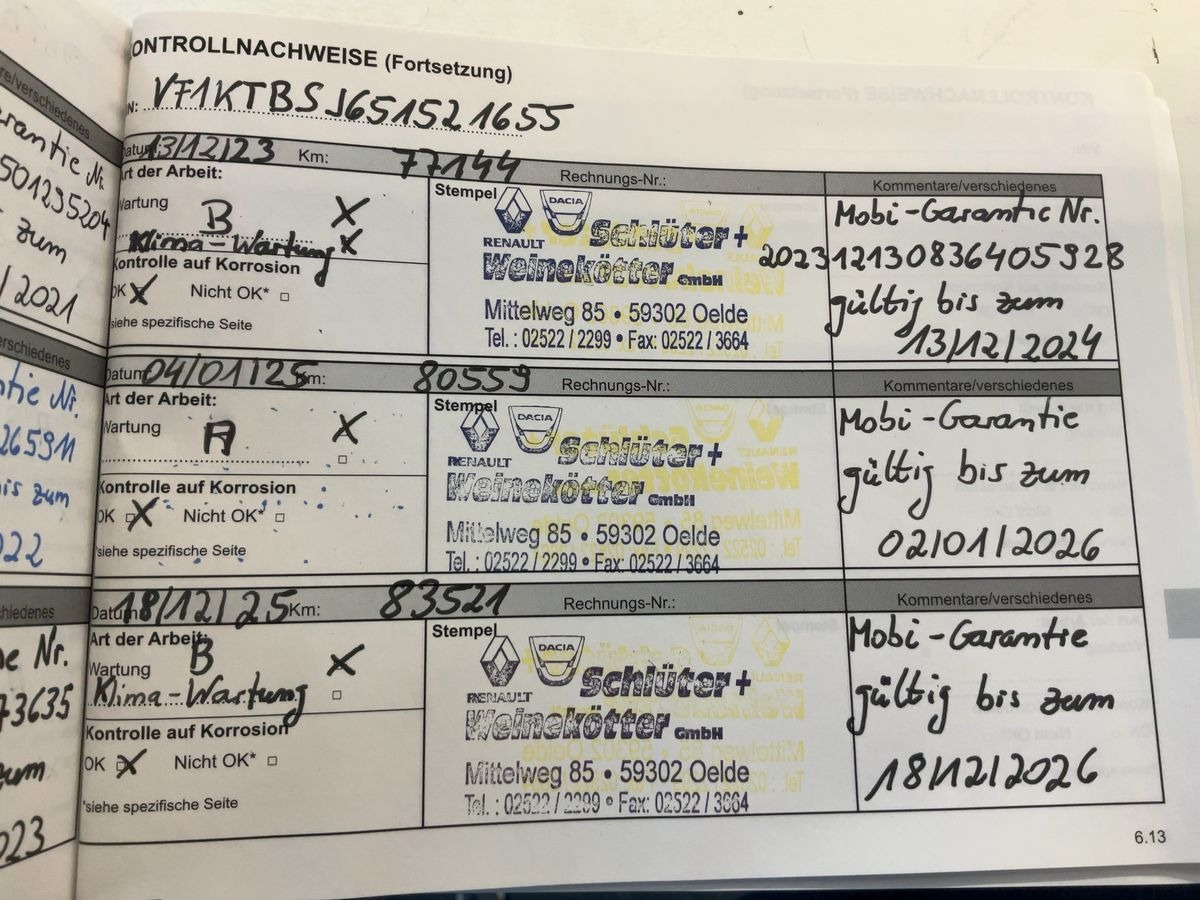 KONTROLLNACHWEISE (Fortsetzung)
VF1KTBSJ651521655
Datum: 13/12/23 Km: 77144 Rechnungs-Nr.: Kommentare/verschiedenes
Art der Arbeit:
Wartung B X
Klima-Wartung X
Kontrolle auf Korrosion
OK X Nicht OK* □
*siehe spezifische Seite
Stempel
RENAULT DACIA Schlüter +
Weinekötter GmbH
Mittelweg 85 • 59302 Oelde
Tel. : 02522 / 2299 • Fax: 02522 / 3664
Mobi-Garantie Nr.
202312130836405928
gültig bis zum
13/12/2024
Datum: 04/01/25 Km: 80559 Rechnungs-Nr.: Kommentare/verschiedenes
Art der Arbeit:
Wartung A X
□
Kontrolle auf Korrosion
OK X Nicht OK* □
*siehe spezifische Seite
Stempel
RENAULT DACIA Schlüter +
Weinekötter GmbH
Mittelweg 85 • 59302 Oelde
Tel. : 02522 / 2299 • Fax: 02522 / 3664
Mobi-Garantie
gültig bis zum
02/01/2026
Datum 18/12/25 Km: 83521 Rechnungs-Nr.: Kommentare/verschiedenes
Art der Arbeit:
Wartung B X
Klima-Wartung □
Kontrolle auf Korrosion
OK X Nicht OK* □
*siehe spezifische Seite
Stempel
RENAULT DACIA Schlüter +
Weinekötter GmbH
Mittelweg 85 • 59302 Oelde
Tel. : 02522 / 2299 • Fax: 02522 / 3664
Mobi-Garantie
gültig bis zum
18/12/2026
6.13